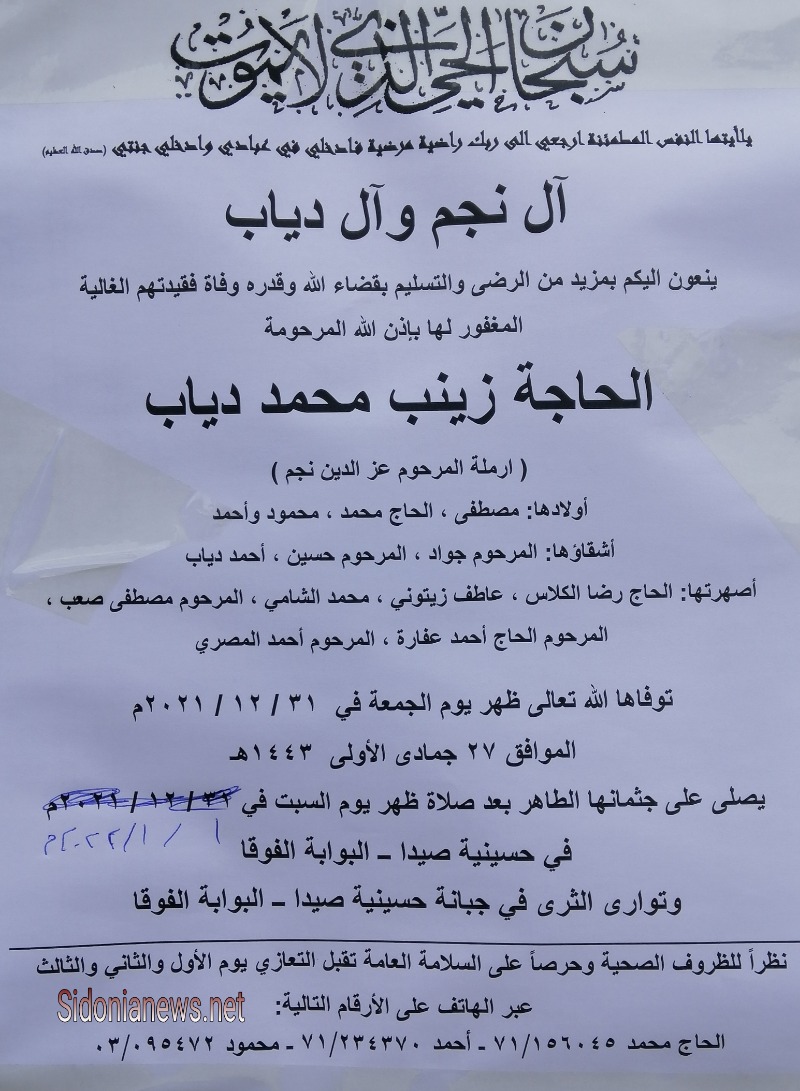 سبحان الحي الذي لا يموت
ياأيتها النفس المطمئنة ارجعي الى ربك راضية مرضية فادخلي في عبادي وادخلي جنتي (صدق الله العظيم)
آل نجم وآل دياب
ينعون اليكم بمزيد من الرضى والتسليم بقضاء الله وقدره وفاة فقيدتهم الغالية
المغفور لها بإذن الله المرحومة
الحاجة زينب محمد دياب
( ارملة المرحوم عز الدين نجم )
أولادها: مصطفى ، الحاج محمد ، محمود وأحمد
أشقاؤها: المرحوم جواد ، المرحوم حسين ، أحمد دياب
أصهرتها: الحاج رضا الكلاس ، عاطف زيتوني ، محمد الشامي ، المرحوم مصطفى صعب ،
المرحوم الحاج أحمد عفارة ، المرحوم أحمد المصري
توفاها الله تعالى ظهر يوم الجمعة في ٣١ / ١٢ / ٢٠٢١م
الموافق ٢٧ جمادى الأولى ١٤٤٣هـ
يصلى على جثمانها الطاهر بعد صلاة ظهر يوم السبت في ٣٢ / ١٢ / ٢٠٢١م
١ / ١ / ٢٠٢٢م
في حسينية صيدا – البوابة الفوقا
وتوارى الثرى في جبانة حسينية صيدا – البوابة الفوقا
نظراً للظروف الصحية وحرصاً على السلامة العامة تقبل التعازي يوم الأول والثاني والثالث
عبر الهاتف على الأرقام التالية:
Sidonianews.net
الحاج محمد ٧١/١٥٦٠٤٥ ـ أحمد ٧١/٢٣٤٣٧٠ ـ محمود ٠٣/٠٩٥٤٧٢